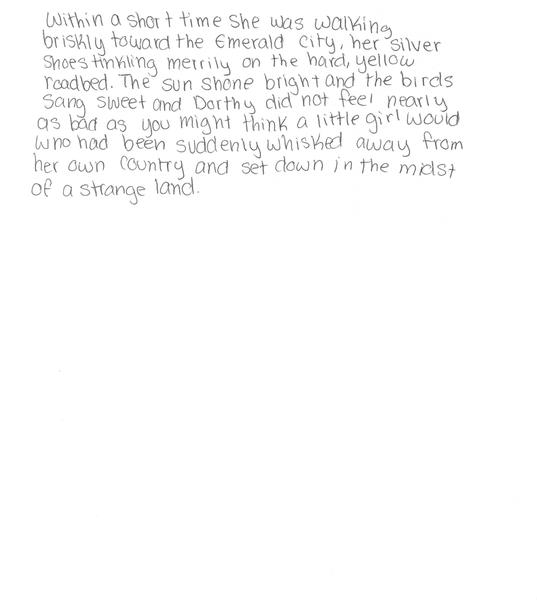 Within a short time she was walking
briskly toward the Emerald City, her silver
shoes tinkling merrily on the hard, yellow
roadbed. The sun shone bright and the birds
sang sweet and Dorthy did not feel nearly
as bad as you might think a little girl would
who had been suddenly whisked away from
her own country and set down in the midst
of a strange land.